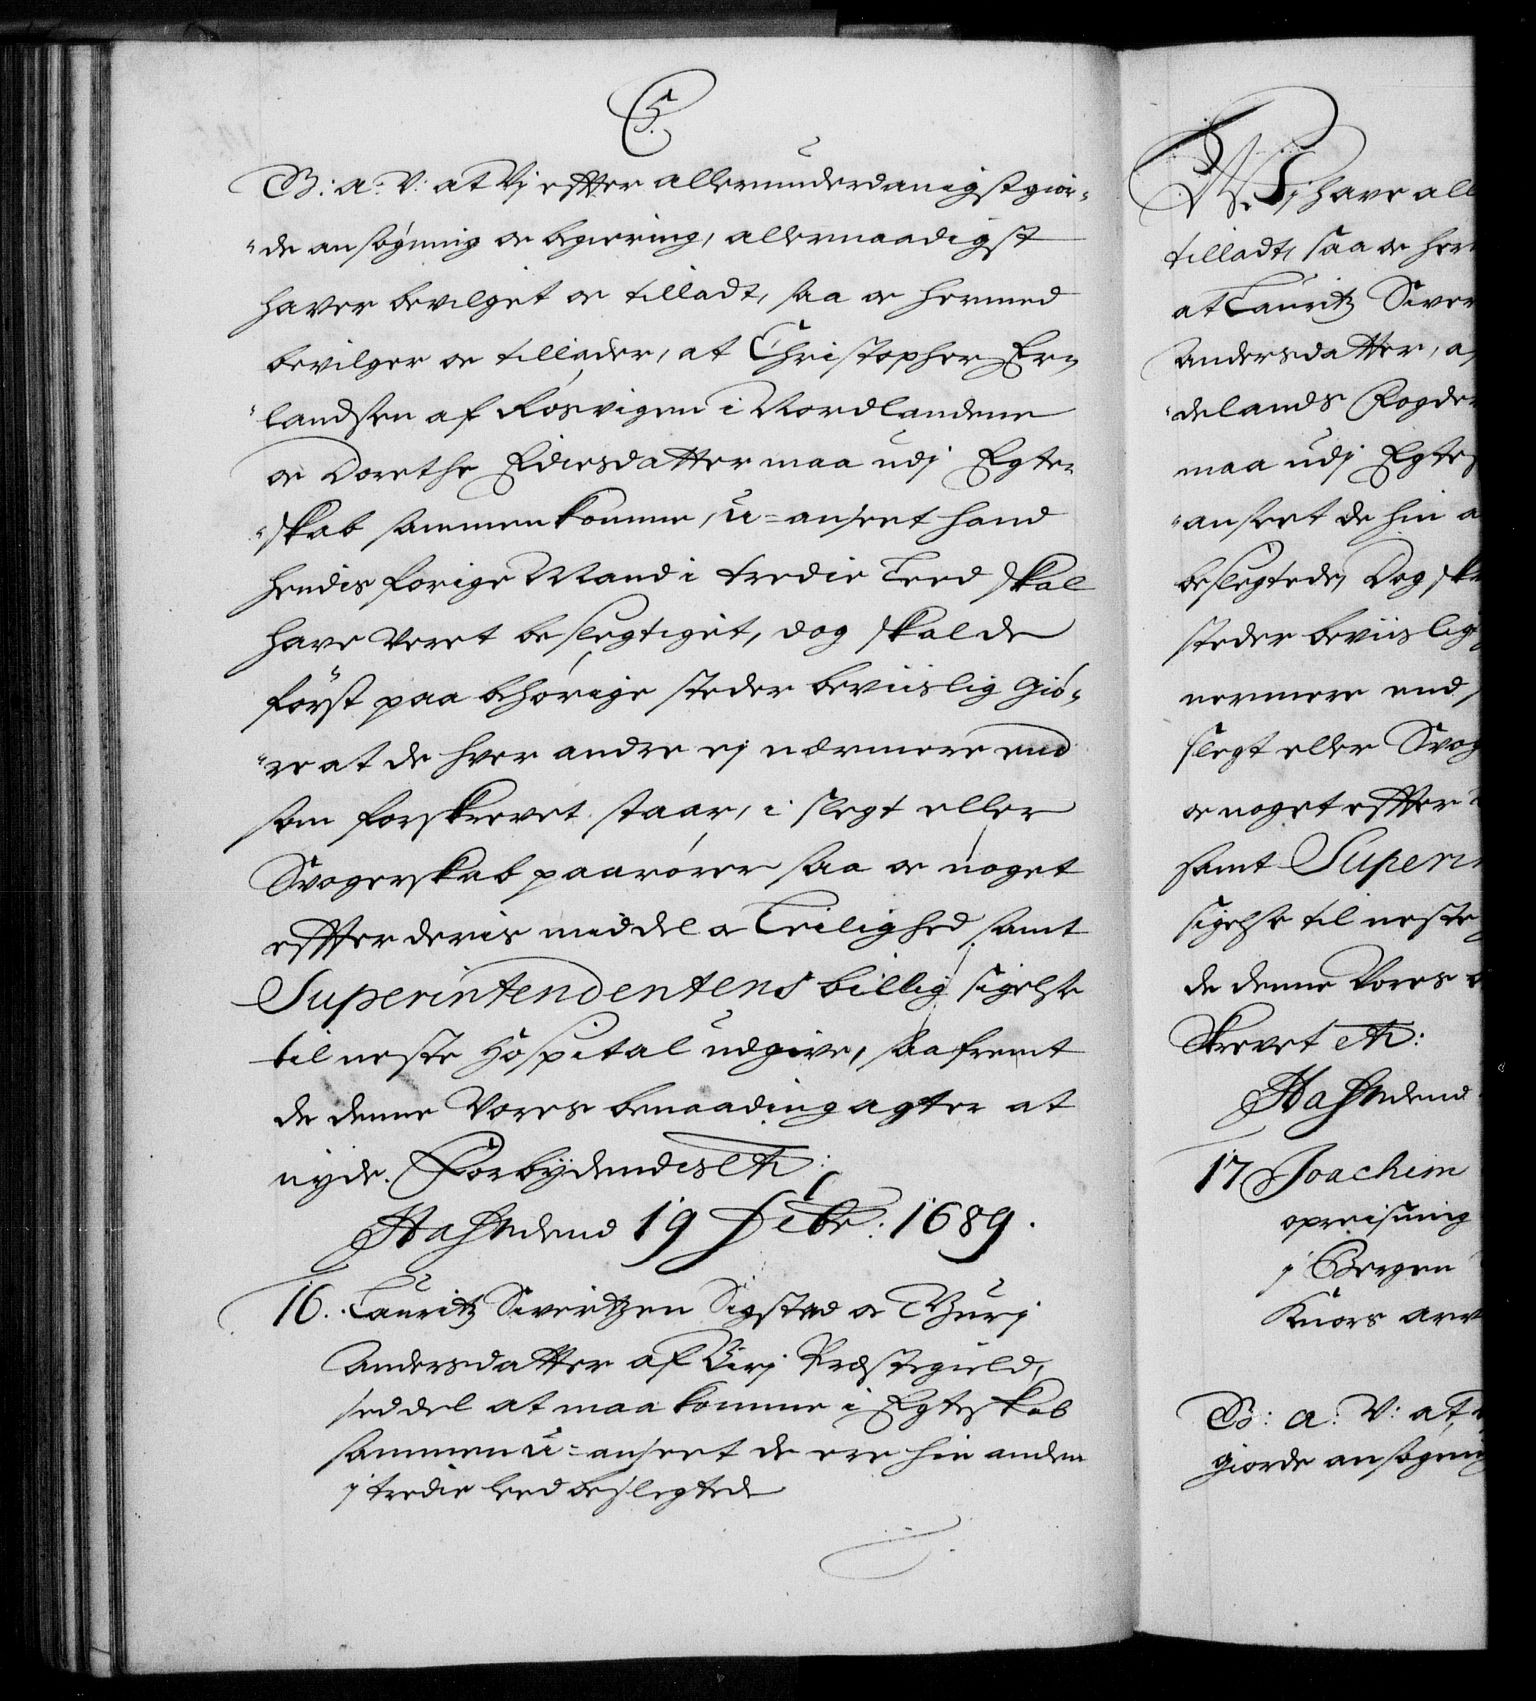 C 5.
G: a: V: at Vj effter allerunderdanigst gior-
de ansøgning oc begiering, allernaadigst
haver bevilget oc tilladt, saa oc hermed
bevilger oc tillader, at Christopher Er-
landsen af Rosvigen i Nordlandene
oc Dorethe Eidisdatter maa udj Egte-
skab sammenkomme, u-anseet hand
hendis forige Mand i tredie Leed skal
have veret beslegtiget, dog skal de
først paa behørige steder beviislig giø-
re at de hver andre ej nærmere end
som forskrevet staar, i slegt eller
Svogerskab paarører saa oc noget
effter deris middel oc Leilighed samt
Superintendentens billig sigelse
til neste Hospital udgive, saafremt
de denne Vores benaading agter at
nyde. Forbydendes etc:
Hafn den 19 Xbr: 1689.
16. Lauritz Sivertzen Sigstad oc Guri
Andersdatter af Birj Præstegield,
seddel at maa komme i Egteskab
sammen u-anseet de ere hin anden
i tredie leed beslegtede
Vj have all
tilladt, saa oc her
at Lauritz Siver
Andersdatter, a
delands Fogder
maa udj Egte
anseet de hin a
beslegtede, Dog sk
steder beviislig
nermere end
slegt eller Svog
oc noget effter
samt Superin
sigelse til neste
de denne Vores
Skrevet etc:
Hafn den
17 Joachim
opreisning
i Bergen
Knors arv
G: a: V: at
giorde ansøgning